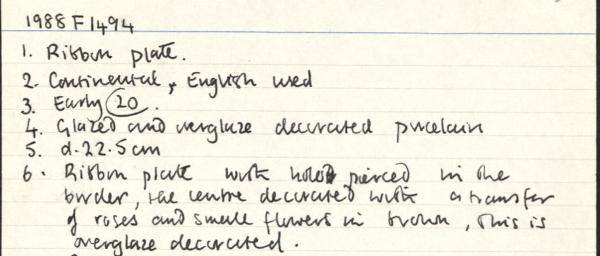 1988 F 1494
1. Ribbon plate.
2. Continental, English used
3. Early 20.
4. Glazed and overglaze decorated porcelain
5. d. 22.5 cm
6. Ribbon plate with holes pierced in the
border, the centre decorated with a transfer
of roses and small flowers in brown, this is
overglaze decorated.